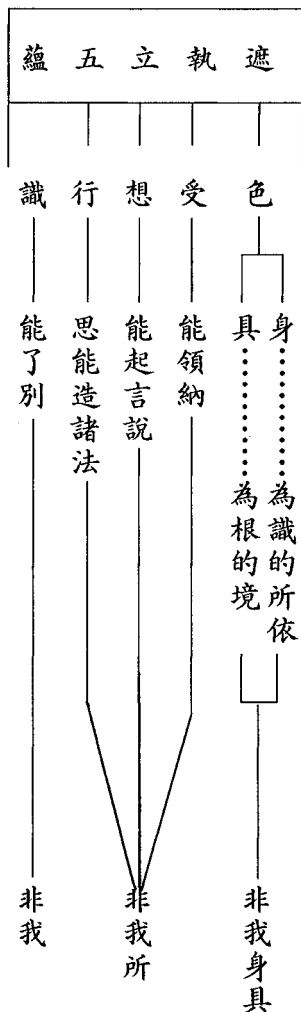 遮執立五蘊
色
身………為識的所依
具………為根的境
非我身具
受
能領納
想
能起言說
行
思能造諸法
非我所
識
能了別
非我